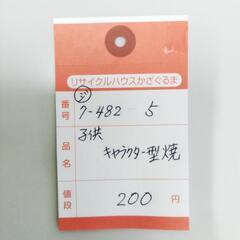 リサイクルハウスかざぐるま
ジ
番号 7-482-5
品名 子供
キャラクター型焼
値段 200円